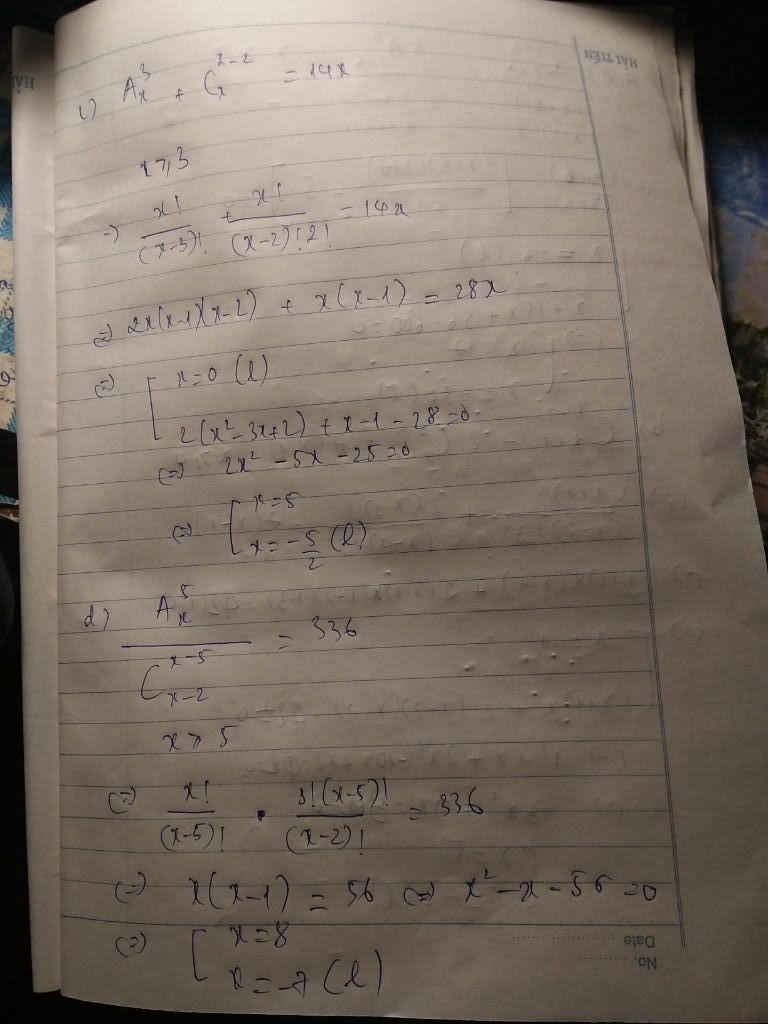 HẢI TIẾN
HẢI
c) A_x^3 + C_x^{x-2} = 14x
x ⩾ 3
=) x!/(x-3)! + x!/(x-2)!2! = 14x
(=) 2x(x-1)(x-2) + x(x-1) = 28x
(=) [ x=0 (l)
2(x²-3x+2) + x-1-28=0
(=) 2x² -5x -25=0
(=) [ x=5
x=-5/2 (l)
d) A_x^5 / C_{x-2}^{x-5} = 336
x ⩾ 5
(=) x!/(x-5)! . 3!(x-5)!/(x-2)! = 336
(=) x(x-1) = 56 (=) x²-x-56=0
(=) [ x=8
x=-7 (l)
Date
No.